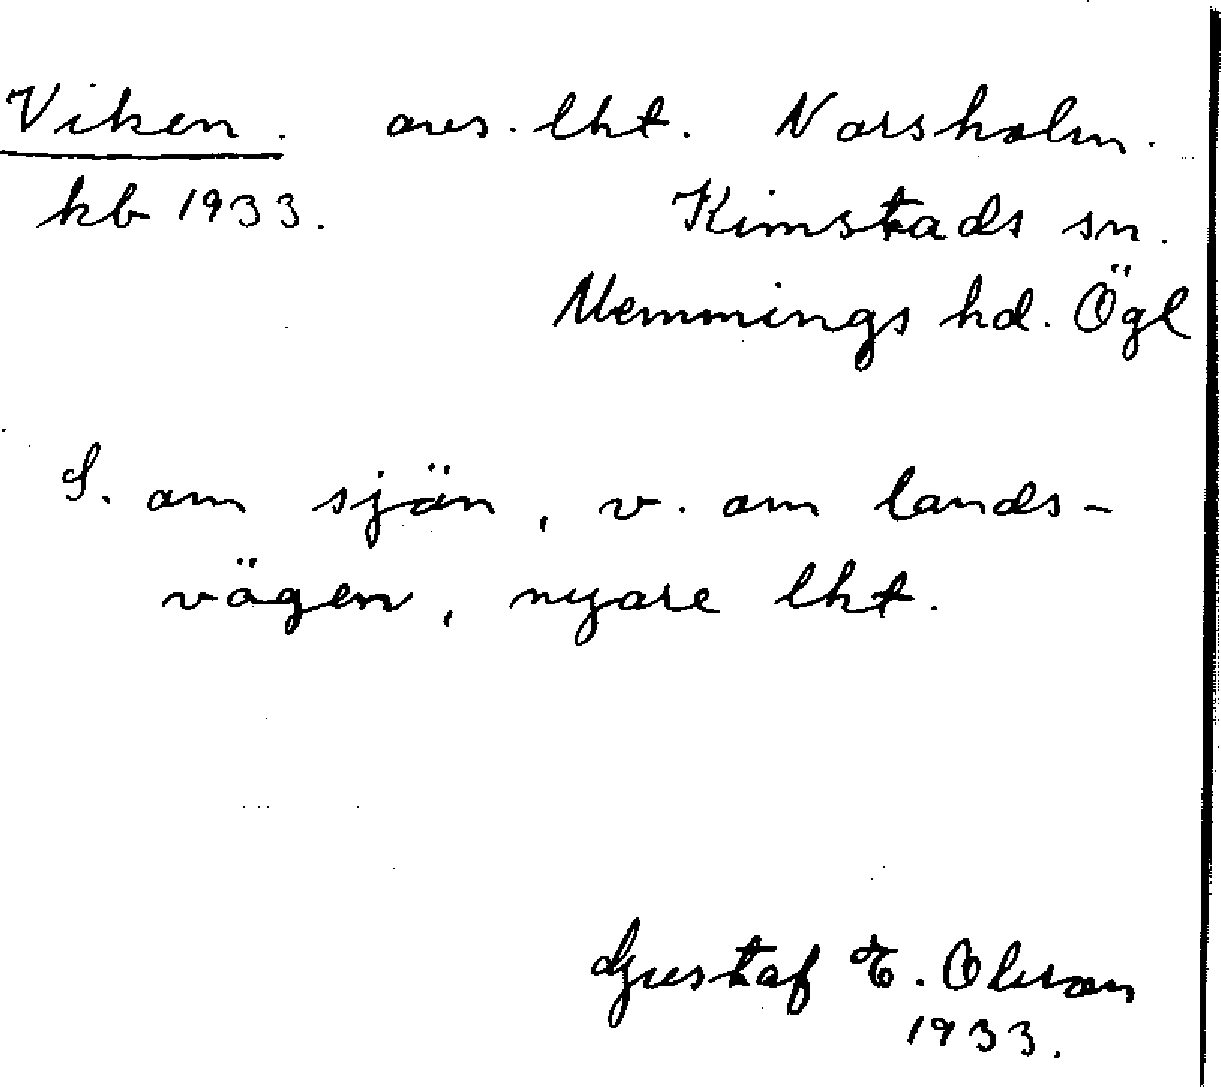 Viken. avs. lht. Norsholm.
kb 1933. Kimstads sn.
Memmings hd. Ögl
S. om sjön, v. om lands-
vägen, nyare lht.
Gustaf T. Olsson
1933.